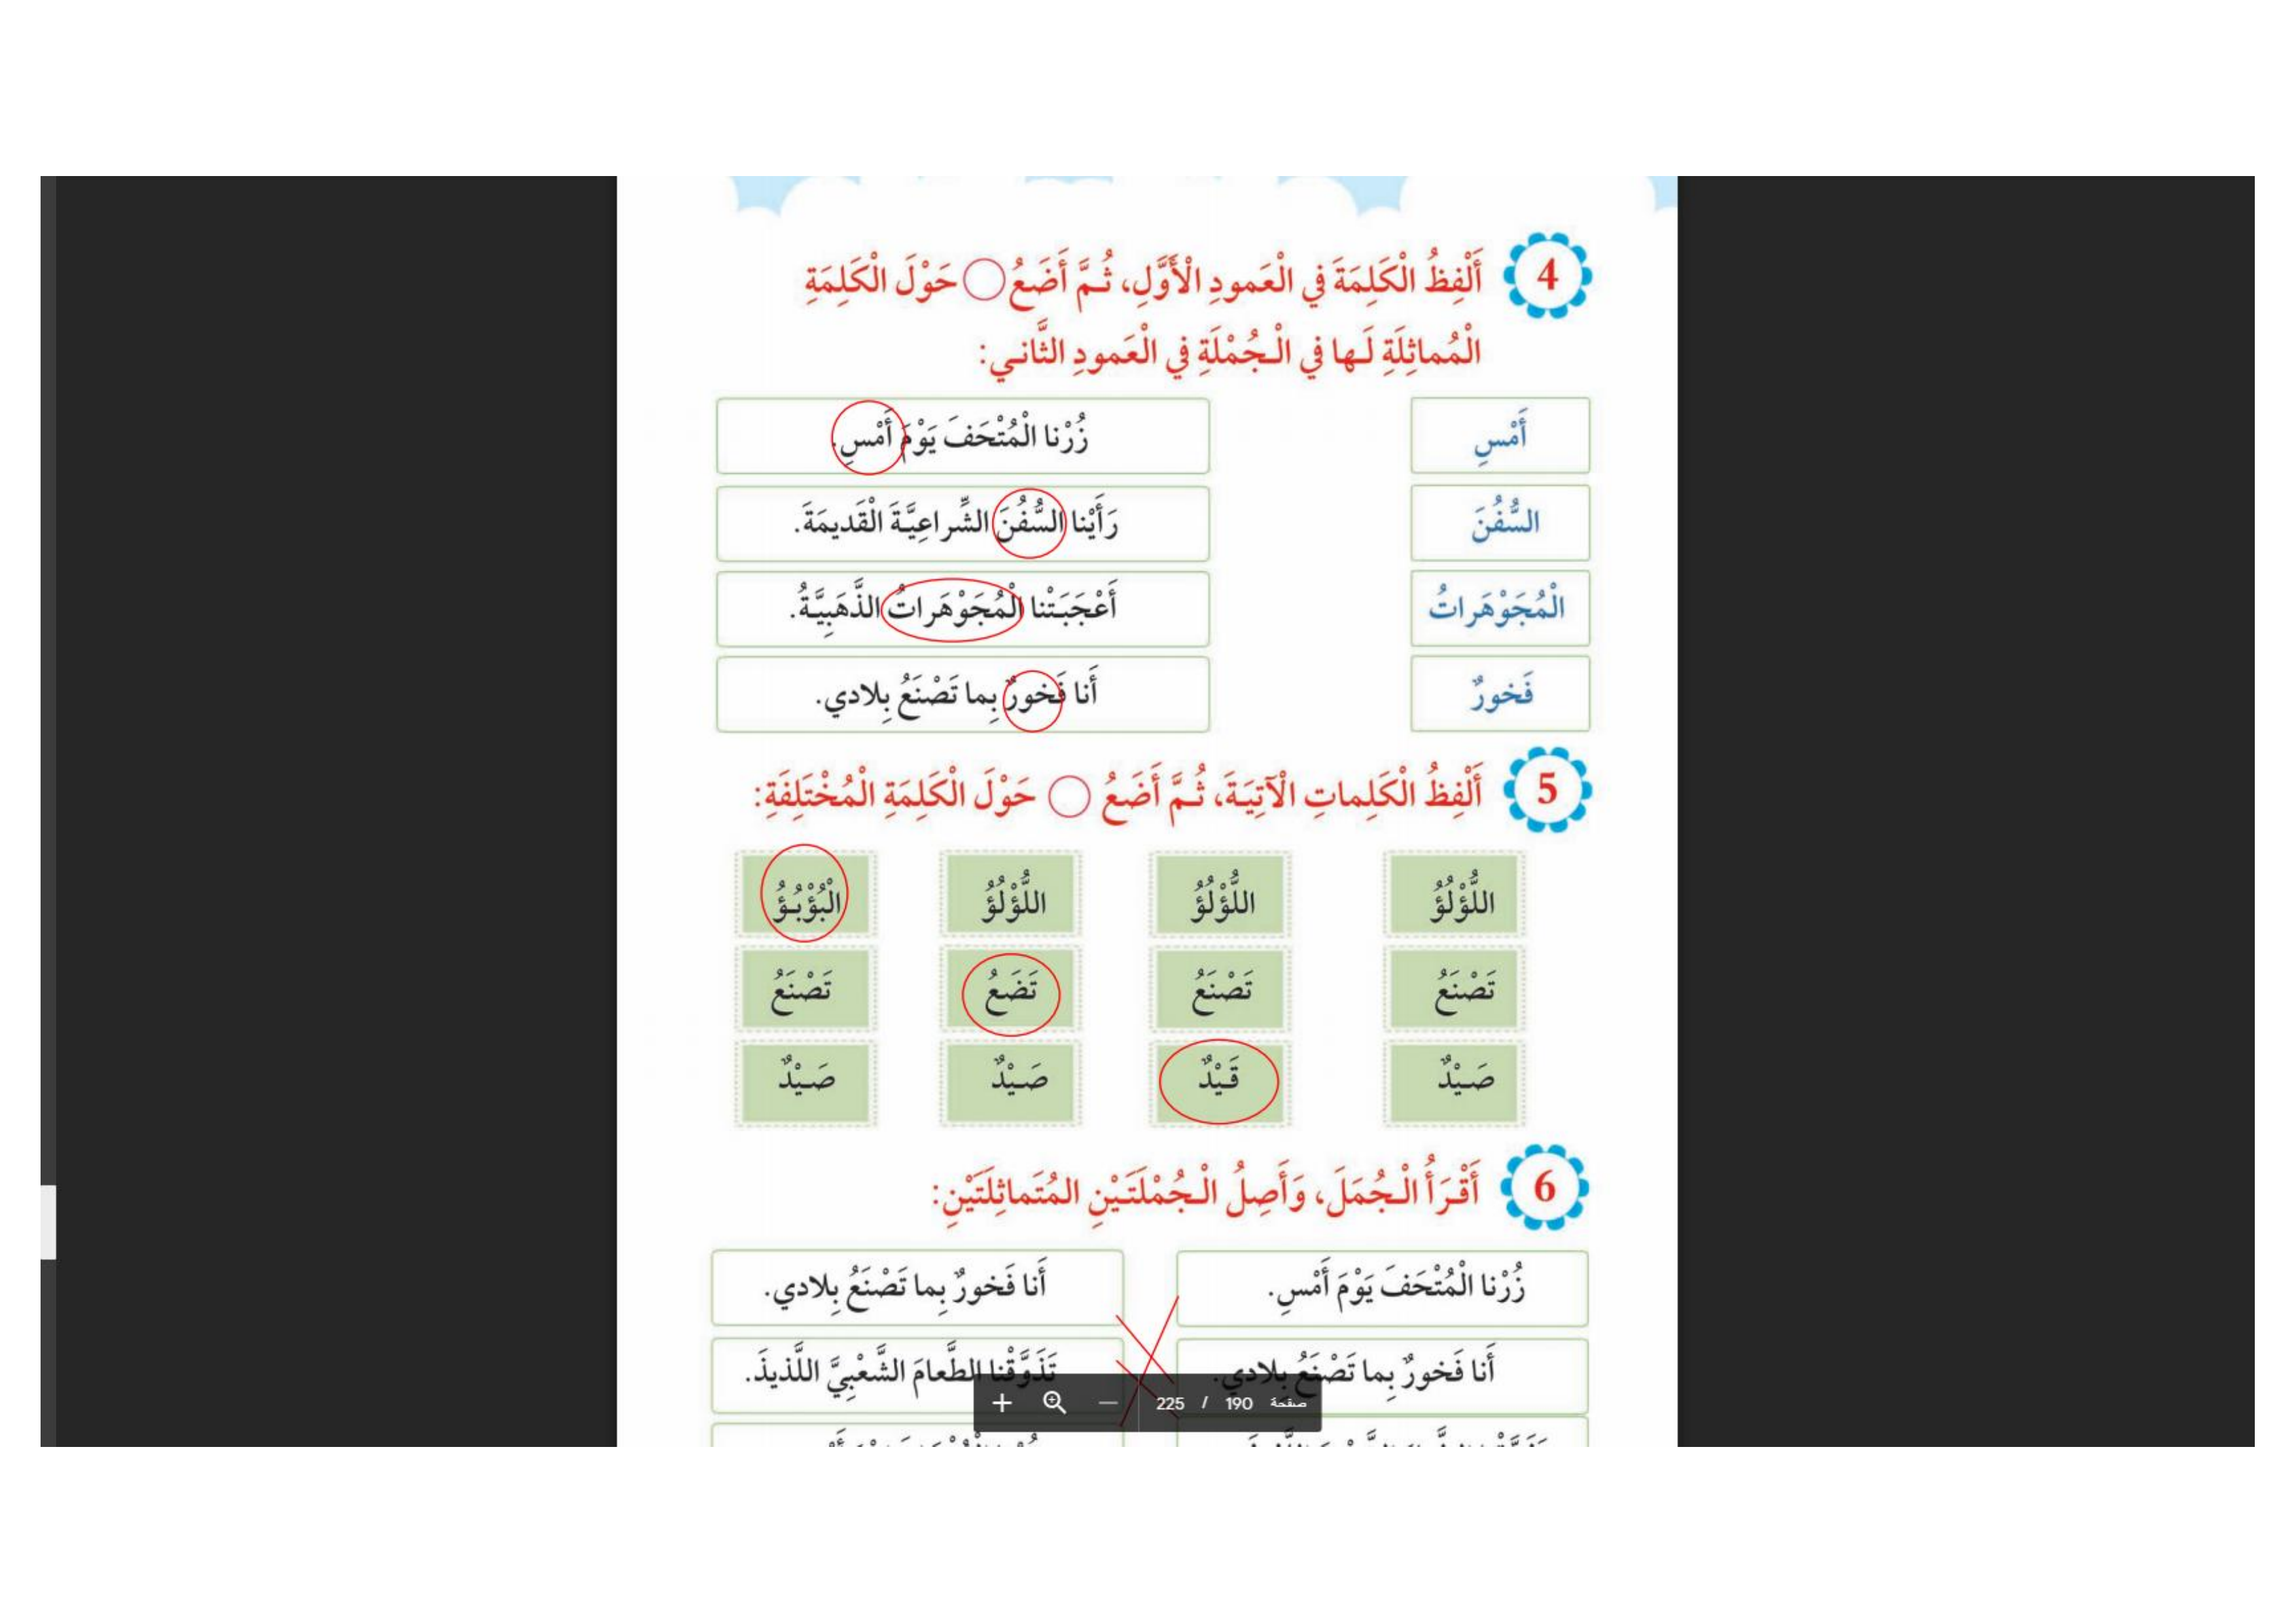 4 أَلْفِظُ الْكَلِمَةَ في الْعَمودِ الْأَوَّلِ، ثُمَّ أَضَعُ حَوْلَ الْكَلِمَةِ
الْمُماثِلَةِ لَها في الْجُمْلَةِ في الْعَمودِ الثَّاني:
أَمْسِ زُرْنا الْمُتْحَفَ يَوْمَ أَمْسِ.
السُّفُنَ رَأَيْنا السُّفُنَ الشِّراعِيَّةَ الْقَديمَةَ.
الْمُجَوْهَراتُ أَعْجَبَتْنا الْمُجَوْهَراتُ الذَّهَبِيَّةُ.
فَخورٌ أَنا فَخورٌ بِما تَصْنَعُ بِلادي.
5 أَلْفِظُ الْكَلِماتِ الْآتِيَةَ، ثُمَّ أَضَعُ حَوْلَ الْكَلِمَةِ الْمُخْتَلِفَةِ:
اللُّؤْلُؤُ اللُّؤْلُؤُ اللُّؤْلُؤُ الْبُؤْبُؤُ
تَصْنَعُ تَصْنَعُ تَضَعُ تَصْنَعُ
صَيْدٌ قَيْدٌ صَيْدٌ صَيْدٌ
6 أَقْرَأُ الْجُمَلَ، وَأَصِلُ الْجُمْلَتَيْنِ المُتَماثِلَتَيْنِ:
زُرْنا الْمُتْحَفَ يَوْمَ أَمْسِ. أَنا فَخورٌ بِما تَصْنَعُ بِلادي.
أَنا فَخورٌ بِما تَصْنَعُ بِلادي. تَذَوَّقْنا الطَّعامَ الشَّعْبِيَّ اللَّذيذَ.
صفحة 190 / 225